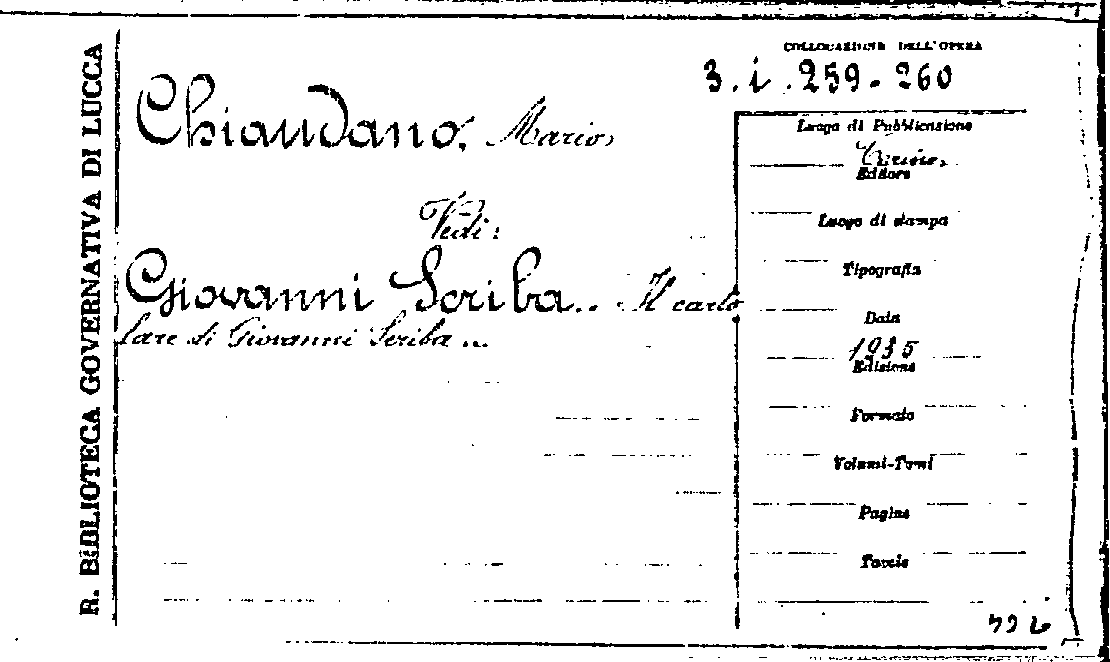 R. BIBLIOTECA GOVERNATIVA DI LUCCA
COLLOCAZIONE DELL'OPERA
3. i. 259-260
Chiaudano, Mario,
Vedi:
Giovanni Scriba.. Il carto
lare di Giovanni Scriba...
Luogo di Pubblicazione
Torino,
Editore
Luogo di stampa
Tipografia
Data
1935
Edizione
Formato
Volumi-Tomi
Pagine
Tavole